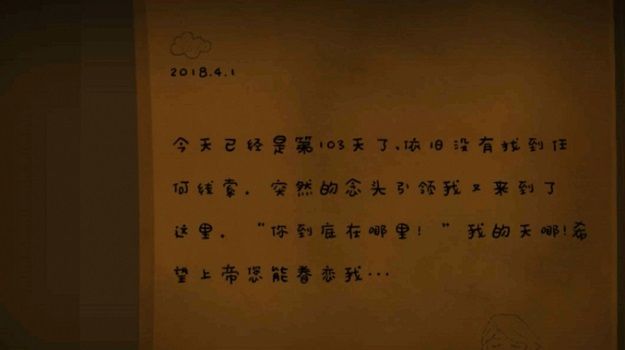 2018.4.1
今天已经是第103天了、依旧没有找到任
何线索。突然的念头引领我又来到了
这里。“你到底在哪里！”我的天哪!希
望上帝您能眷恋我…